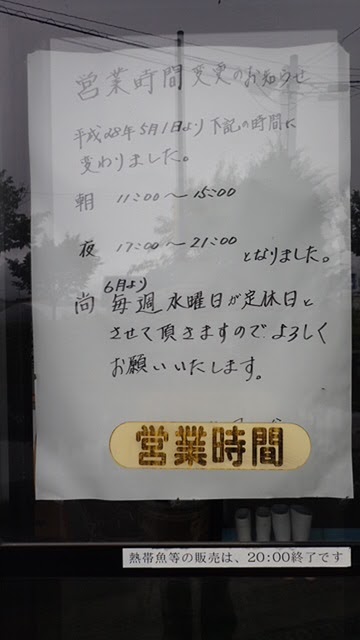 営業時間変更のお知らせ
平成28年5月1日より下記の時間に
変わりました。
朝 11:00〜15:00
夜 17:00〜21:00
となりました。
6月より
尚 毎週水曜日が定休日と
させて頂きますのでよろしく
お願いいたします。
営業時間
熱帯魚等の販売は、20:00終了です